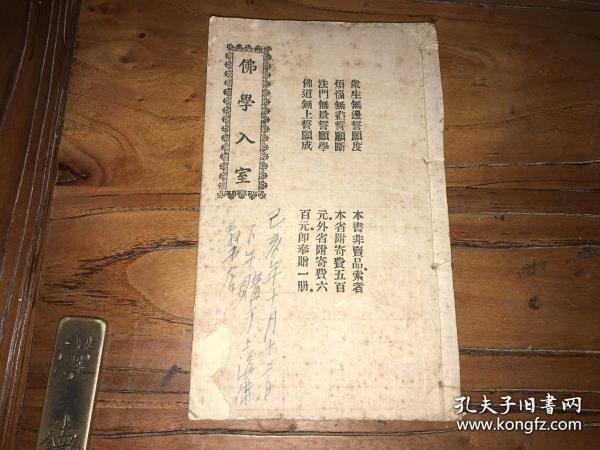 眾生無邊誓願度
煩惱無盡誓願斷
法門無量誓願學
佛道無上誓願成
本書非賣品索者
本省附寄費五百
元外省附寄費六
百元即奉贈一册
佛學入室
己亥年十月十二日
下午購于上海佛
書店
孔夫子旧書网
www.kongfz.com